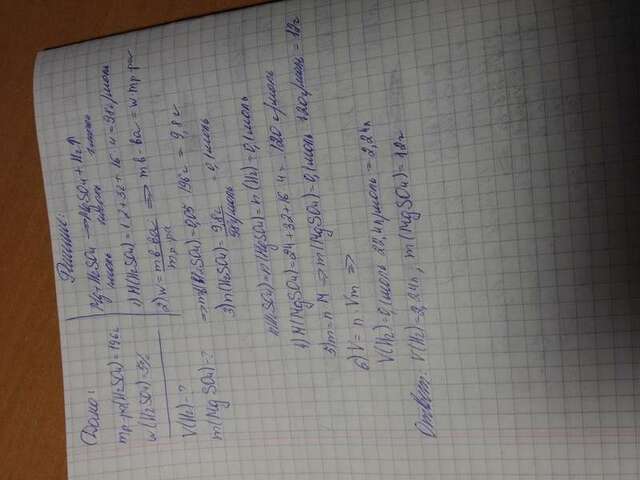 Дано:
mр-ра(H2SO4)=196г
w(H2SO4)=5%
V(H2)-?
m(MgSO4)-?
Решение:
Mg+H2SO4→MgSO4+H2↑
1моль 1моль 1моль
1) M(H2SO4)=1·2+32+16·4=98г/моль
2) w=mв-ва/mр-ра ⇒ mв-ва=w·mр-ра
⇒m(H2SO4)=0,05·196г=9,8г
3) n(H2SO4)=9,8г/98г/моль=0,1моль
n(H2SO4)=n(MgSO4)=n(H2)=0,1моль
4) M(MgSO4)=24+32+16·4=120г/моль
5) m=n·M ⇒ m(MgSO4)=0,1моль·120г/моль=12г
6) V=n·Vm ⇒
V(H2)=0,1моль·22,4л/моль=2,24л
Ответ: V(H2)=2,24л, m(MgSO4)=12г